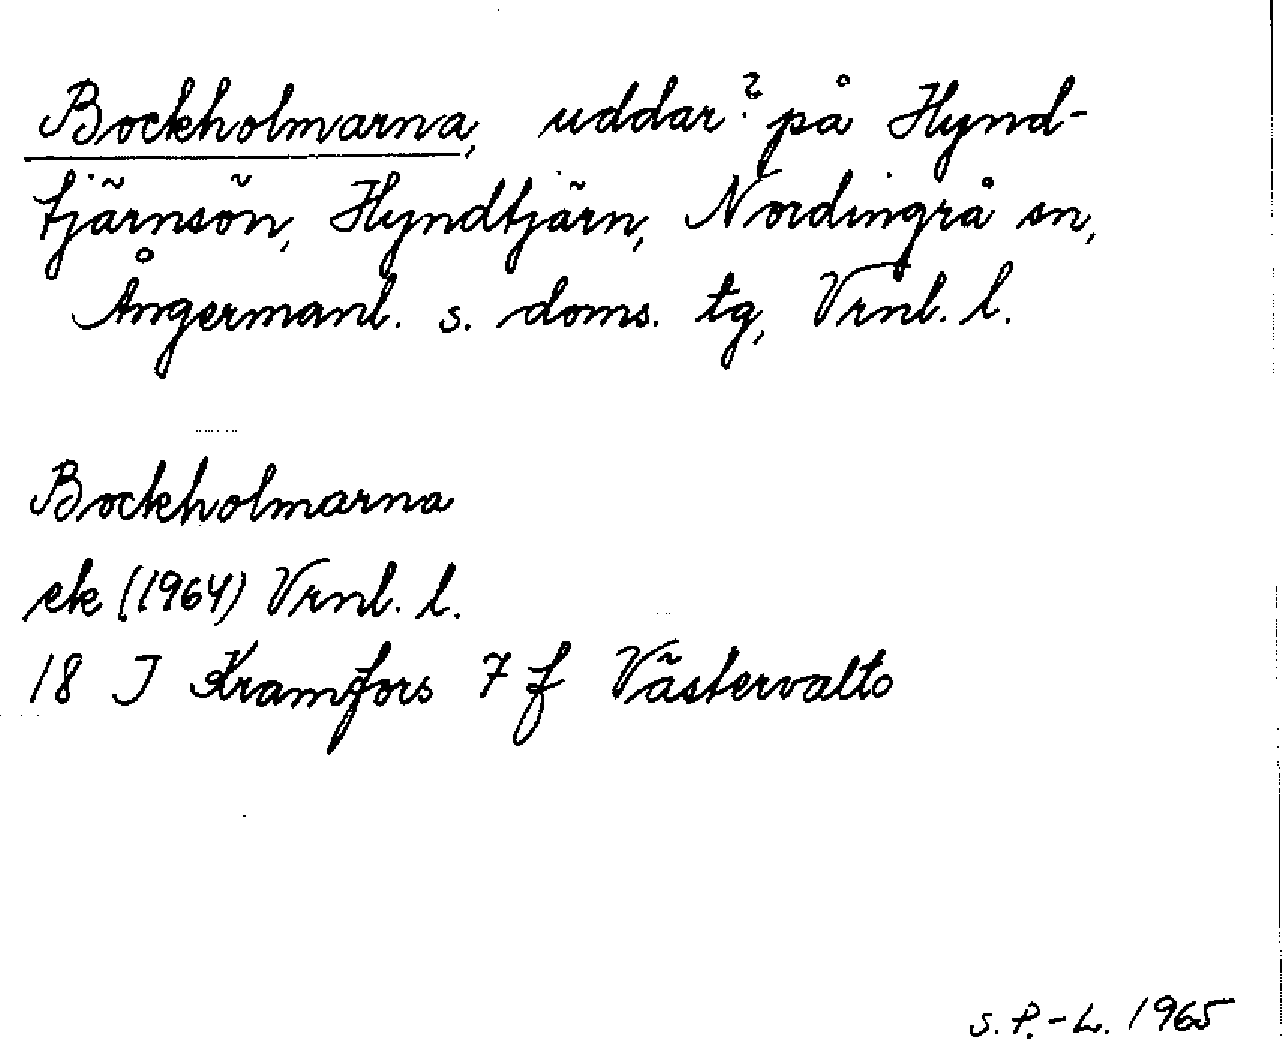 Bockholmarna, uddar? på Hynd-
tjärnsön, Hyndtjärn, Nordingrå sn,
Ångermanl. s. doms. tg, Vrnl. l.
Bockholmarna
ek (1964) Vrnl. l.
18 J Kramfors 7 f Västervalto
S. P.-L. 1965